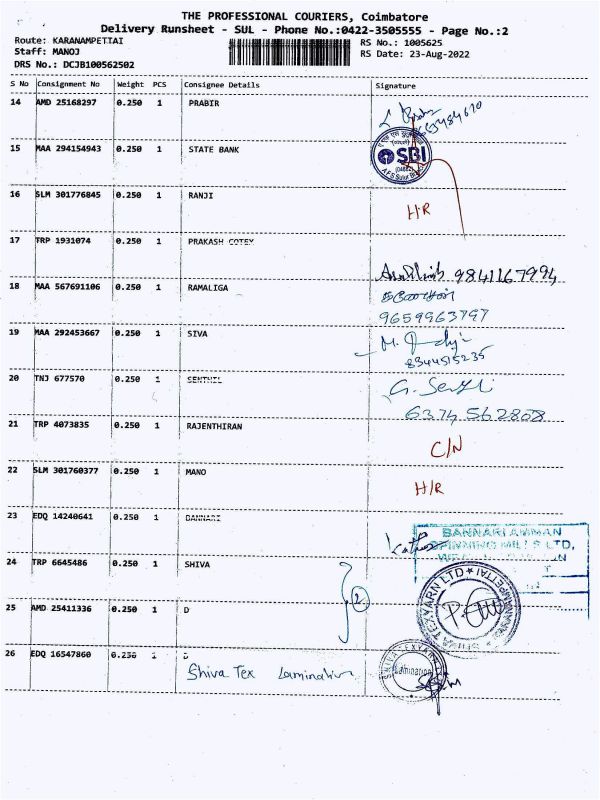 THE PROFESSIONAL COURIERS, Coimbatore
Delivery Runsheet - SUL - Phone No.:0422-3505555 - Page No.:2
Route: KARANAMPETTAI
RS No.: 1005625
Staff: MANOJ
RS Date: 23-Aug-2022
DRS No.: DCJB100562502
S No Consignment No Weight PCS Consignee Details Signature
14 AMD 25168297 0.250 1 PRABIR
15 MAA 294154943 0.250 1 STATE BANK
SBI
16 SLM 301776845 0.250 1 RANJI H/R
17 TRP 1931074 0.250 1 PRAKASH COTEX
9841167994
18 MAA 567691106 0.250 1 RAMALIGA
9659963797
19 MAA 292453667 0.250 1 SIVA
8344515235
20 TNJ 677570 0.250 1 SENTHIL G. Senthil
6374562808
21 TRP 4073835 0.250 1 RAJENTHIRAN C/N
22 SLM 301760377 0.250 1 MANO H/R
23 EDQ 14240641 0.250 1 BANNARI
BANNARI AMMAN
SPINNING MILLS LTD,
24 TRP 6645486 0.250 1 SHIVA
SHIVA TEXYARN LTD
25 AMD 25411336 0.250 1 D 2
26 EDQ 16547860 0.250 1 D
Shiva Tex Lamination
Lamination